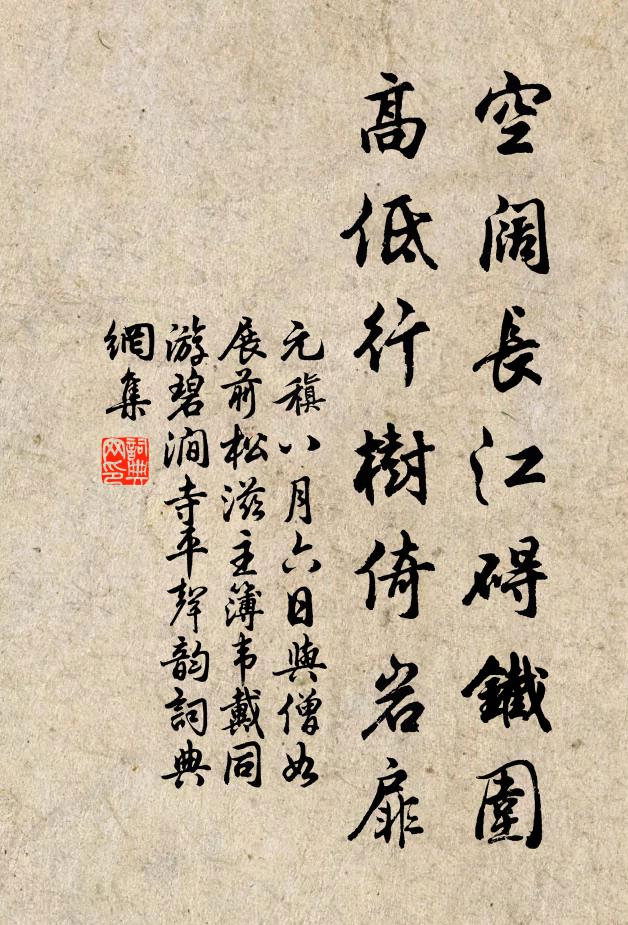 空阔長江碍鐵圍
高低行樹倚岩扉
元稹八月六日與僧如
展前松滋主簿韦戴同
游碧澗寺平聲韵詞典
網集
詞典網印